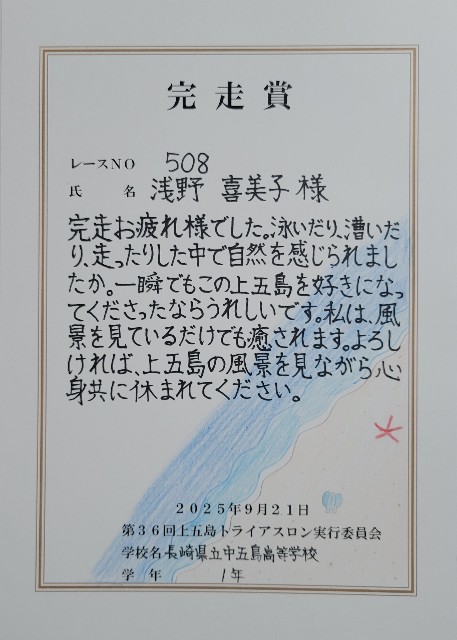 完走賞
レースNO 508
氏名 浅野 喜美子 様
完走お疲れ様でした。泳いだり、漕いだ
り、走ったりした中で自然を感じられまし
たか。一瞬でもこの上五島を好きになっ
てくださったならうれしいです。私は、風
景を見ているだけでも癒されます。よろし
ければ、上五島の風景を見ながら心
身共に休まれてください。
2025年9月21日
第36回上五島トライアスロン実行委員会
学校名 長崎県立中五島高等学校
学年 1年